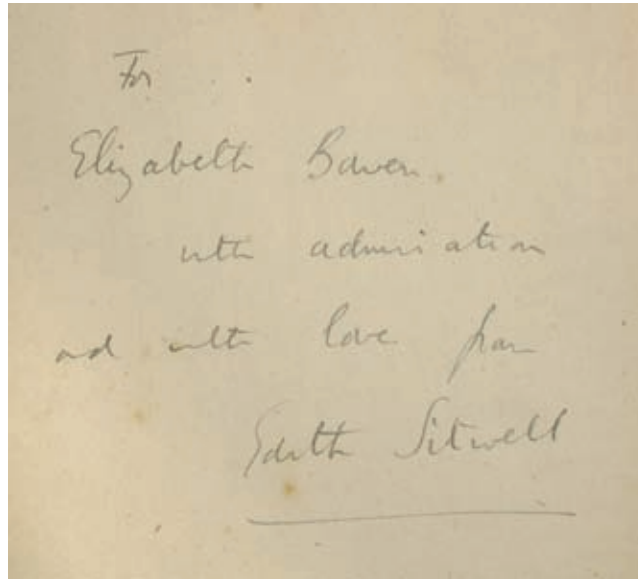 For
Elizabeth Bowen.
with admiration
and with love from
Edith Sitwell